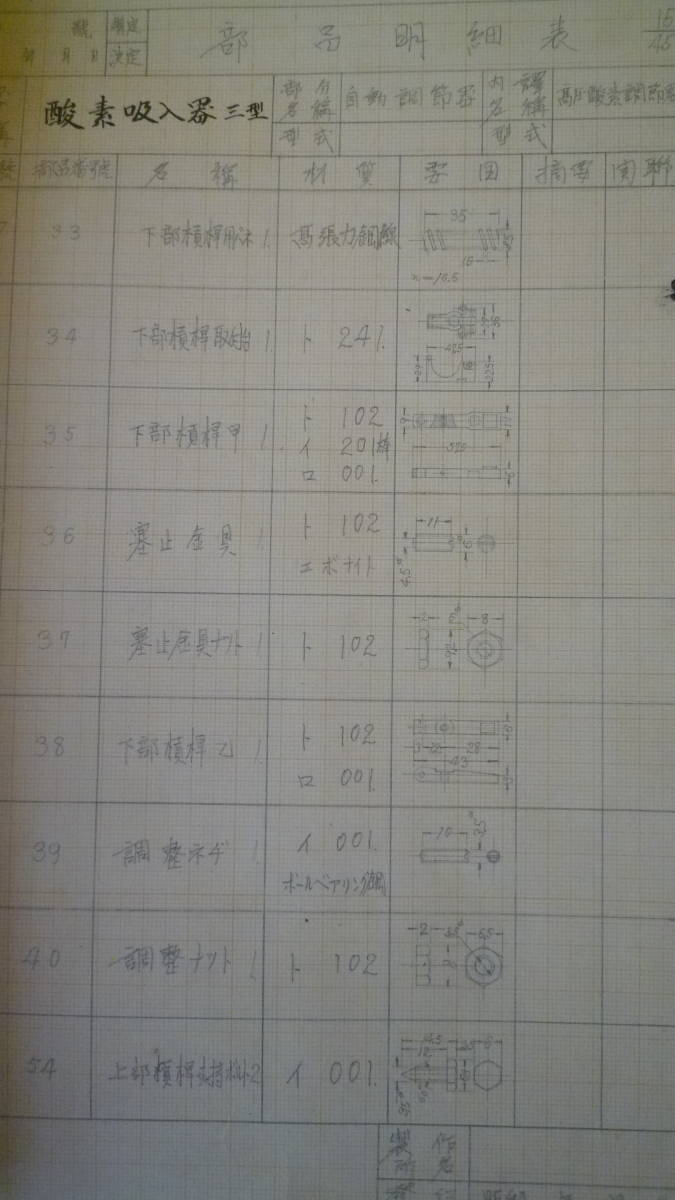 號 假定 部品明細表 15/45
年月日 決定
酸素吸入器三型 部分名稱 自動調節器 内譯名稱 高圧酸素調節器
型式 型式
部品番號 名稱 材質 要図 摘要 関聯
33 下部槓桿用バネ 1. 高張力鋼線 35 15
34 下部槓桿取付台 1. ト 241. 42.5 22.5
35 下部槓桿甲 1. ト 102
イ 201
ロ 001.
36 塞止金具 1. ト 102 11 6 4.5
エボナイト
37 塞止金具ナット 1. ト 102 2 8
38 下部槓桿乙 1. ト 102 28
ロ 001. 43
39 調整ネヂ 1. イ 001. 10 3.5
ボールベアリング鋼
40 調整ナット 1. ト 102 2 5.5
54 上部槓桿支持ボルト2 イ 001. 12
製作所名